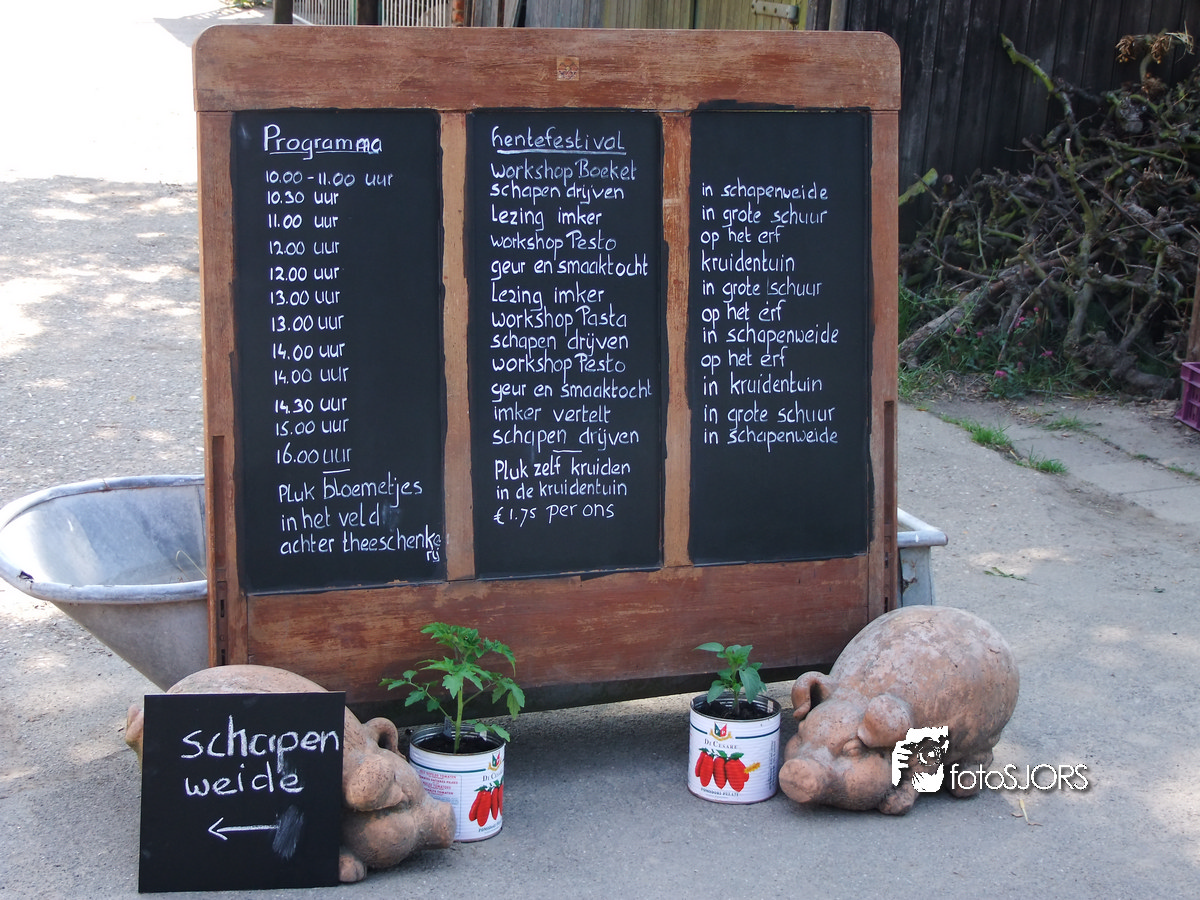 Programma
10.00 - 11.00 uur
10.30 uur
11.00 uur
12.00 uur
12.00 uur
13.00 uur
13.00 uur
14.00 uur
14.00 uur
14.30 uur
15.00 uur
16.00 uur
Pluk bloemetjes
in het veld
achter theeschenke
rij
hentefestival
workshop Boeket
schapen drijven
Lezing imker
workshop Pesto
geur en smaaktocht
Lezing imker
workshop Pasta
schapen drijven
workshop Pesto
geur en smaaktocht
imker vertelt
schapen drijven
Pluk zelf kruiden
in de kruidentuin
€1.75 per ons
in schapenweide
in grote schuur
op het erf
kruidentuin
in grote schuur
op het erf
in schapenweide
op het erf
in kruidentuin
in grote schuur
in schapenweide
schapen
weide
←
Di Cesare
Di Cesare
fotoSJORS